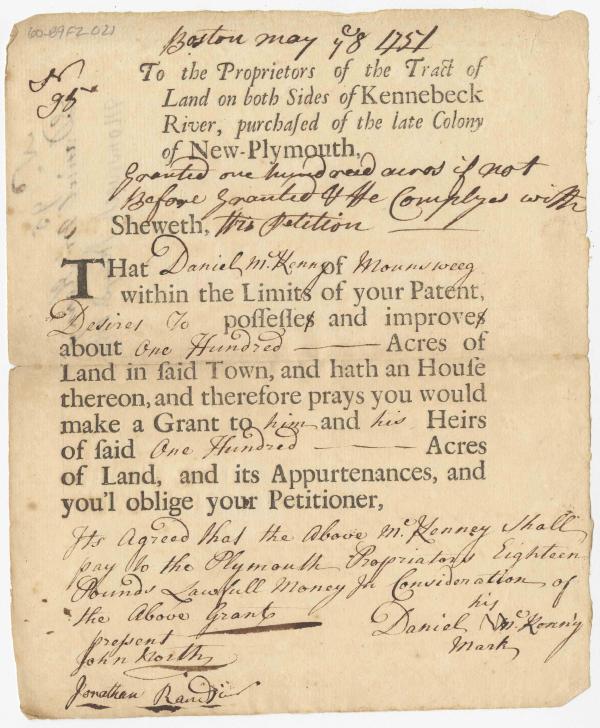 60-89F2-021
Boston may ye 8 1751
No
95
To the Proprietors of the Tract of
Land on both Sides of Kennebeck
River, purchaſed of the late Colony
of New-Plymouth,
Granted one hundred acros if not
Before Granted & He Complyes with
Sheweth, this Petition
THat Daniel Mc.Kenny of Mounsweeg
within the Limits of your Patent,
Desires To poſſeſſes and improves
about One Hundred Acres of
Land in ſaid Town, and hath an Houſe
thereon, and therefore prays you would
make a Grant to him and his Heirs
of ſaid One Hundred Acres
of Land, and its Appurtenances, and
you'l oblige your Petitioner,
Its Agreed that the Above Mc.Kenney Shall
pay to the Plymouth Propriators Eighteen
Pounds Lawfull Money In Consideration of
the Above Grant
his
Daniel Mc.Kenny
Mark
pressent
John North
Jonathan